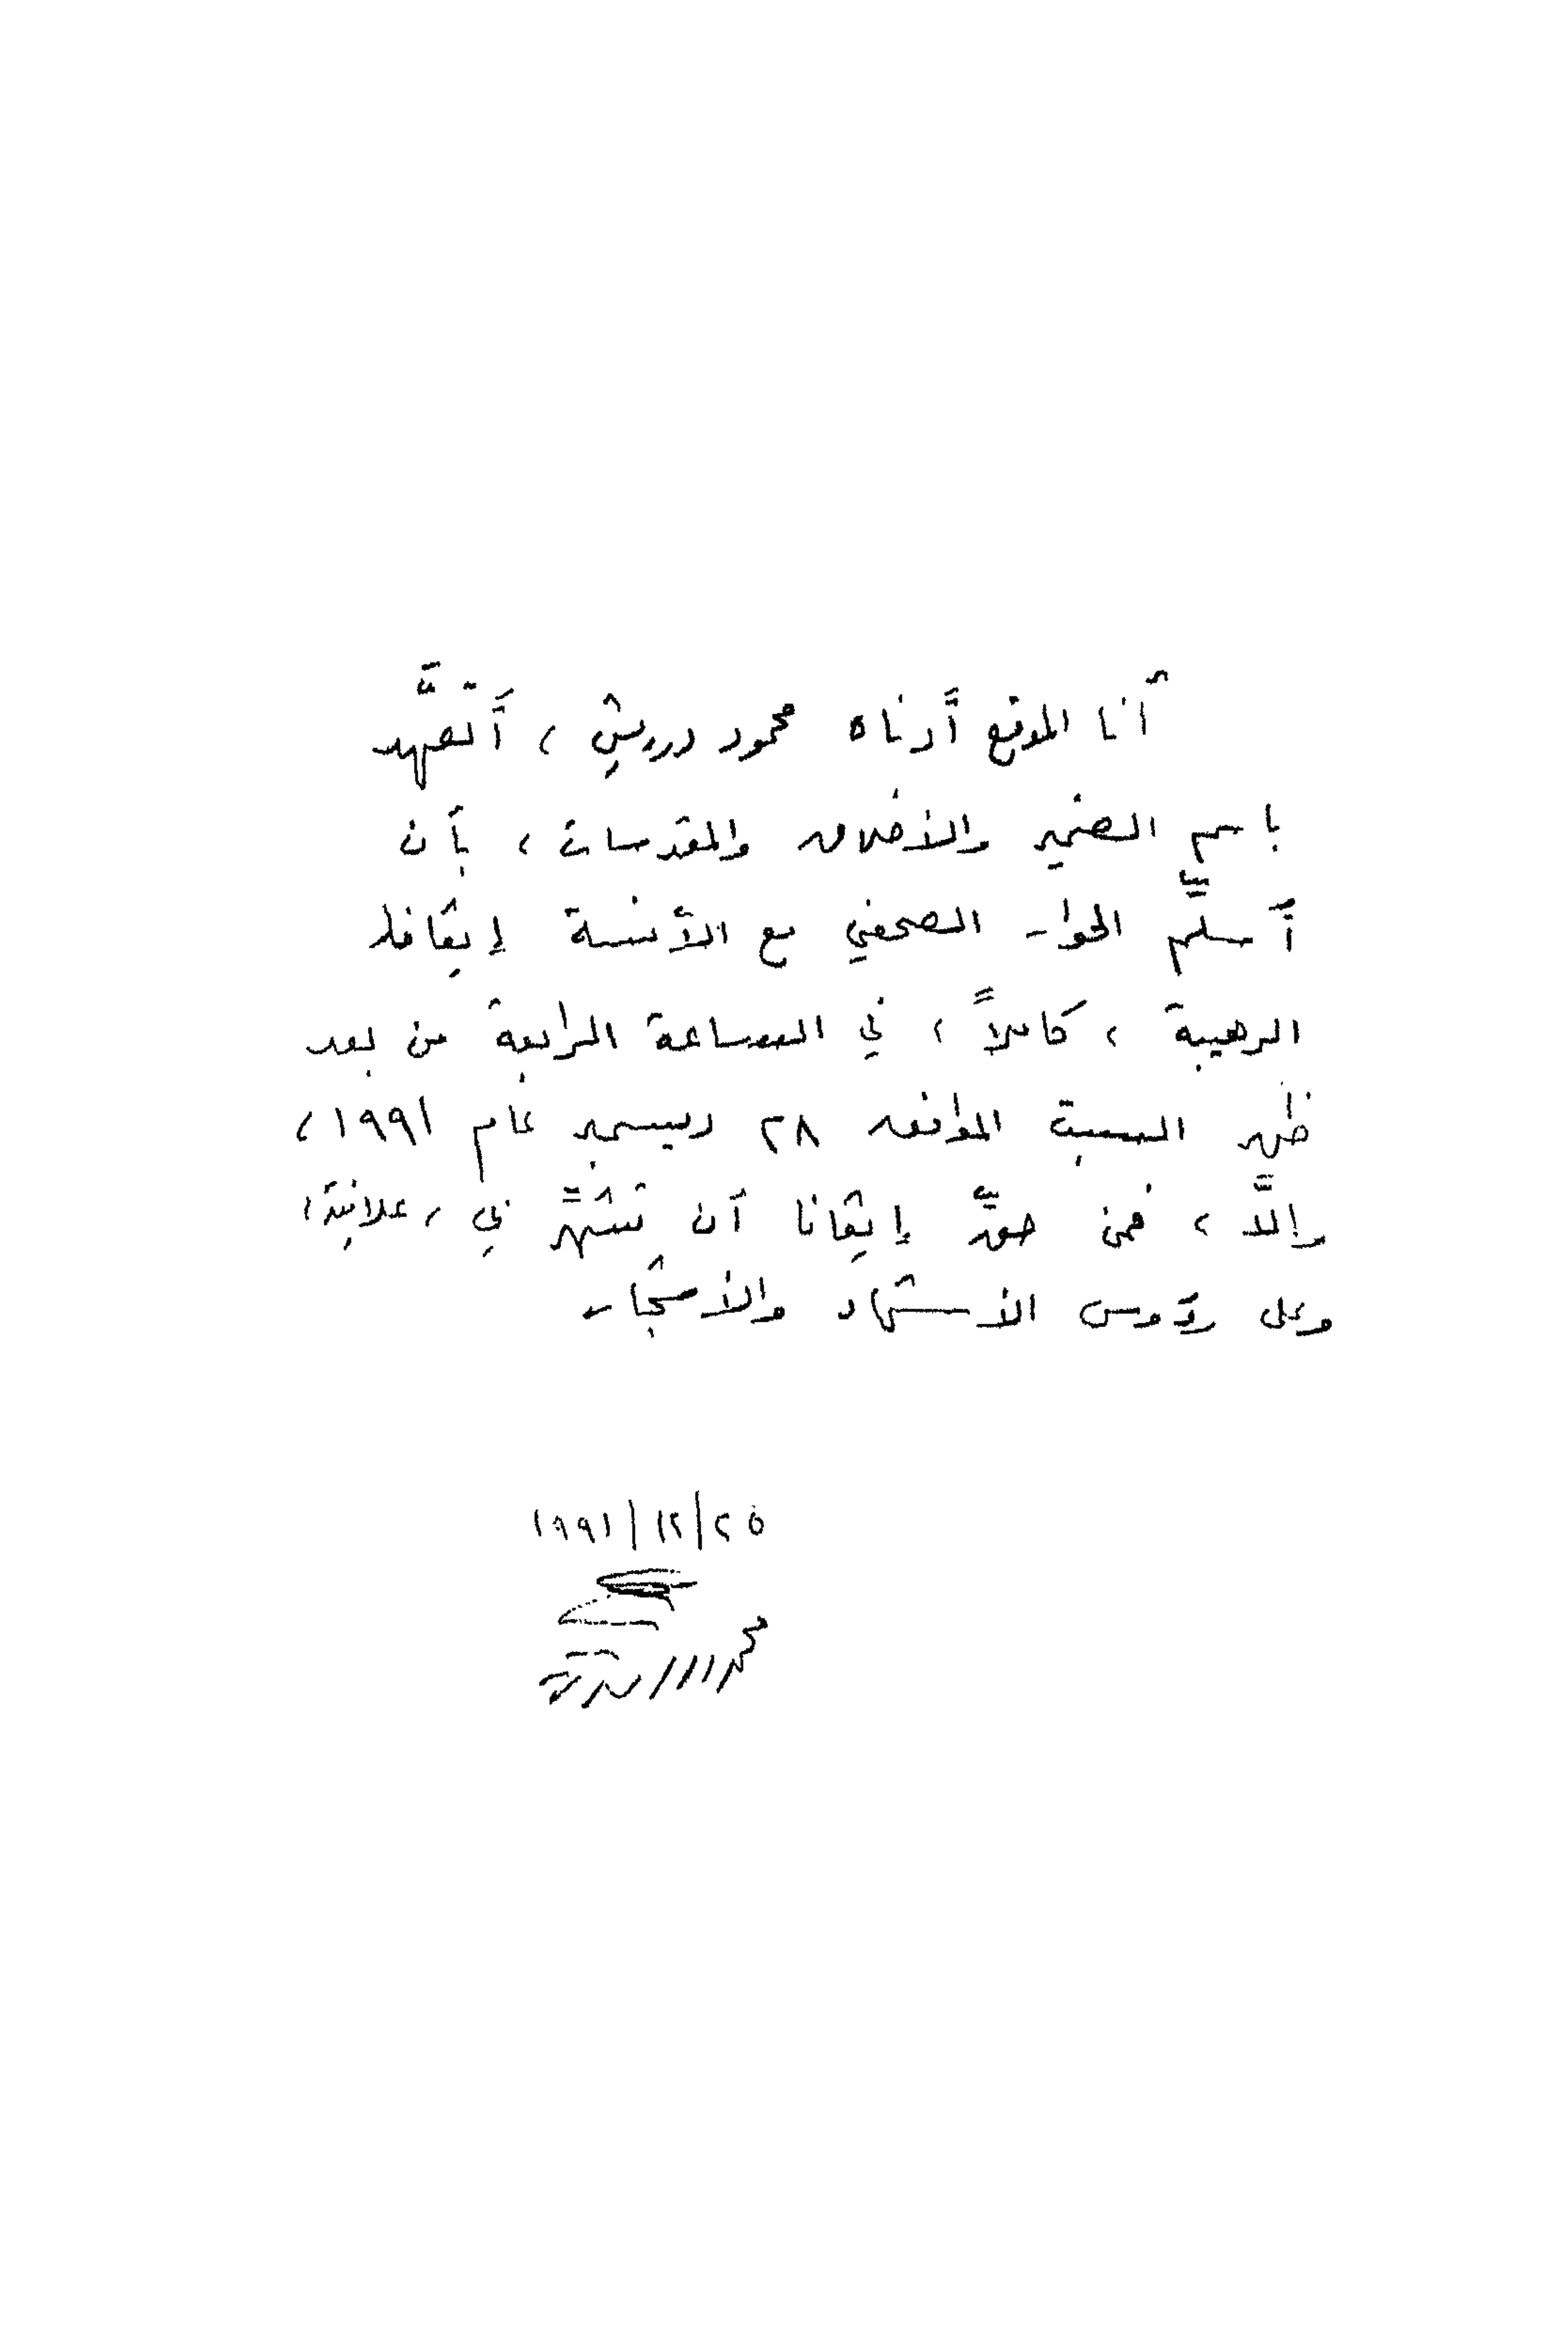 أنا الموقع أدناه محمود درويش ، أتعهَّد
باسم الضمير والأخلاق والمقدسات ، بأن
أسلِّم الحوار الصحفي مع الآنسة إيڤانا
الرهيبة ، كاملاً ، في الساعة الرابعة من بعد
ظهر السبت الموافق ٢٨ ديسمبر عام ١٩٩١ ،
وإلاَّ ، فمن حقِّ إيڤانا أن تشهِّر بي ، علانية ،
وعلى رؤوس الأشهاد والأشجار
٢٥/١٢/١٩٩١
محمود درويش